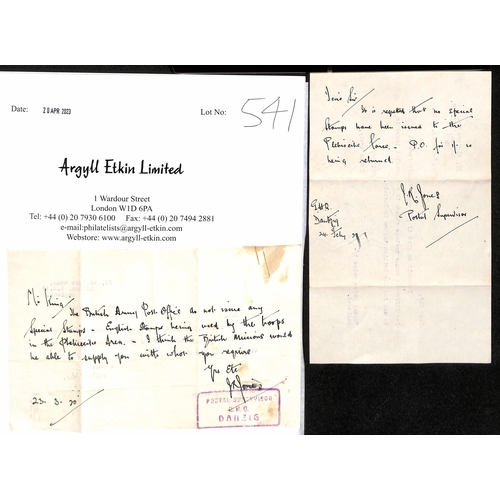 Date: 20 APR 2023
Lot No: 541
Argyll Etkin Limited
1 Wardour Street
London W1D 6PA
Tel: +44 (0) 20 7930 6100 Fax: +44 (0) 20 7494 2881
e-mail:philatelists@argyll-etkin.com
Webstore: www.argyll-etkin.com
Mr King
The British Army Post Office do not issue any
Special Stamps - English Stamps being used by the troops
in the Plebiscite Area. - I think the British Missions would
be able to supply you with what you require
Yrs Etc
J R Jones
23.3.20
POSTAL SUPERVISOR
DANZIG
Dear Sir
It is regretted that no special
Stamps have been issued to the
Plebiscite Force. - P.O. for
being returned.
J.R. Jones
Postal Supervisor
GHQ.
Dantzig